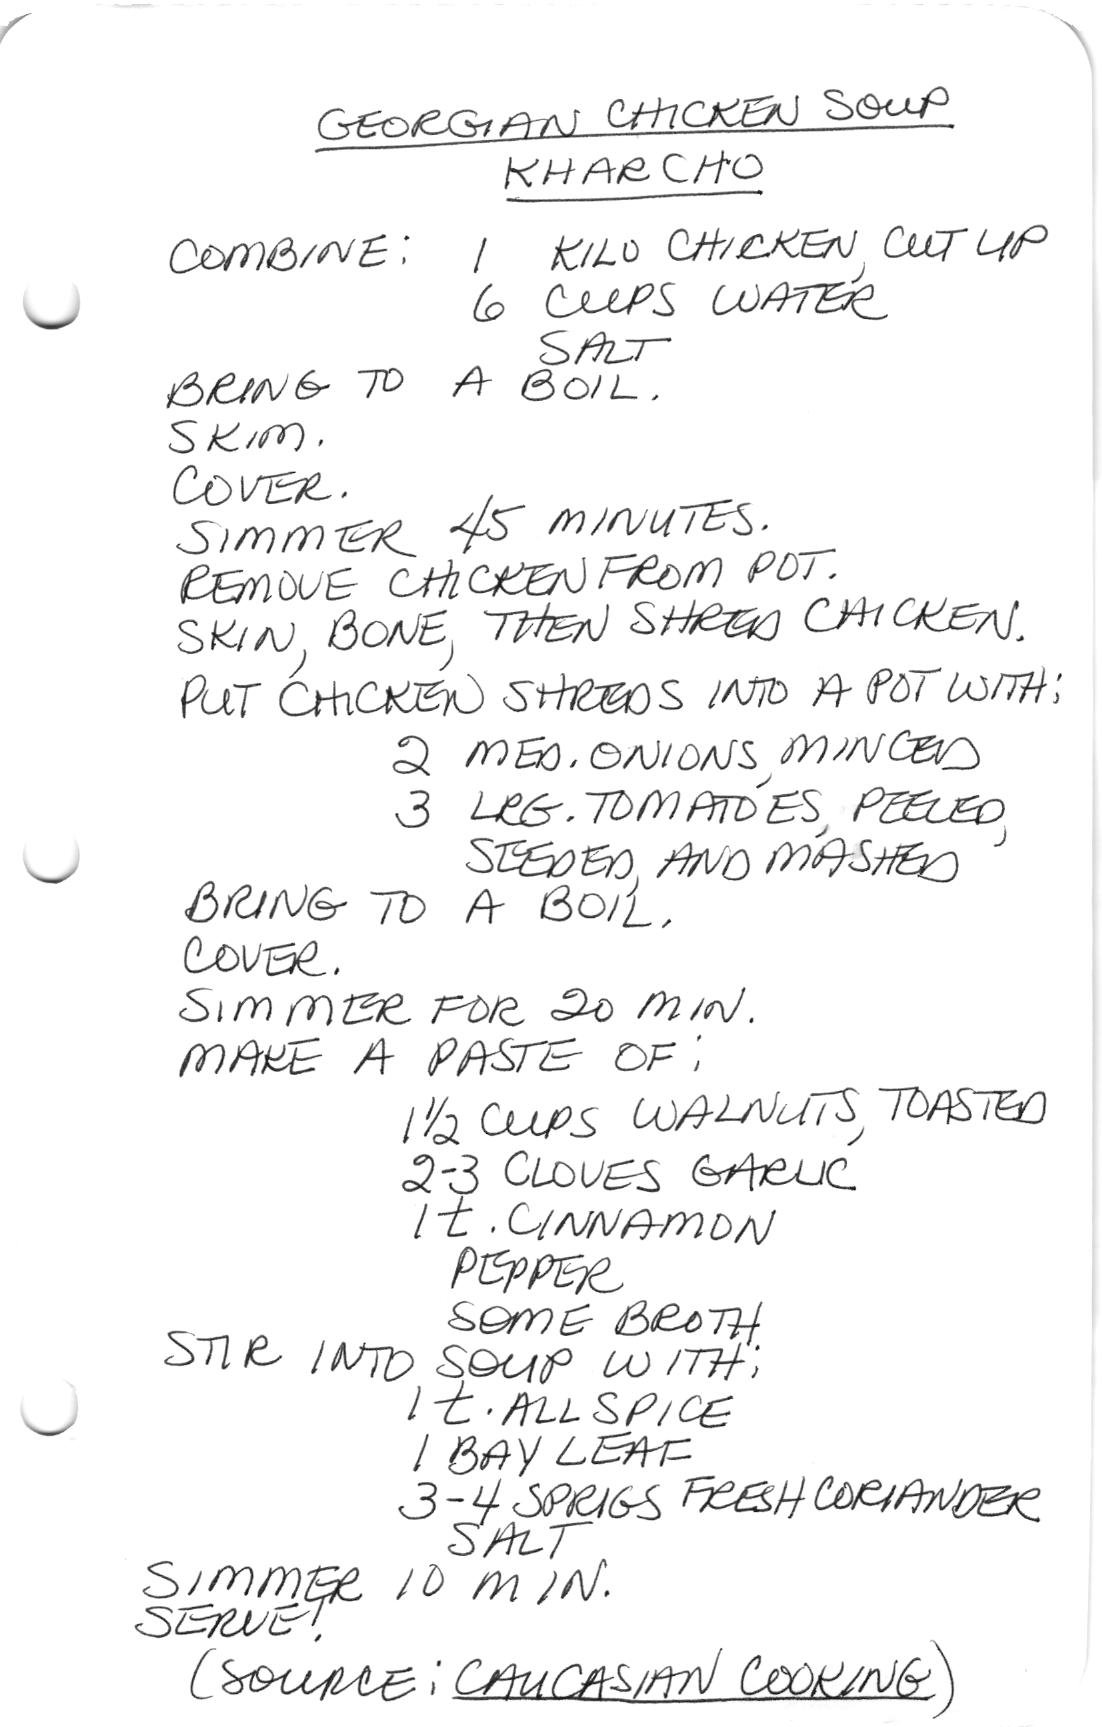 GEORGIAN CHICKEN SOUP
KHARCHO
COMBINE: 1 KILO CHICKEN, CUT UP
6 CUPS WATER
SALT
BRING TO A BOIL.
SKIM.
COVER.
SIMMER 45 MINUTES.
REMOVE CHICKEN FROM POT.
SKIN, BONE, THEN SHRED CHICKEN.
PUT CHICKEN SHREDS INTO A POT WITH:
2 MED. ONIONS, MINCED
3 LRG. TOMATOES, PEELED,
SEEDED, AND MASHED
BRING TO A BOIL.
COVER.
SIMMER FOR 20 MIN.
MAKE A PASTE OF:
1½ CUPS WALNUTS, TOASTED
2-3 CLOVES GARLIC
1 t. CINNAMON
PEPPER
SOME BROTH
STIR INTO SOUP WITH:
1 t. ALLSPICE
1 BAY LEAF
3-4 SPRIGS FRESH CORIANDER
SALT
SIMMER 10 MIN.
SERVE!
(SOURCE: CAUCASIAN COOKING)